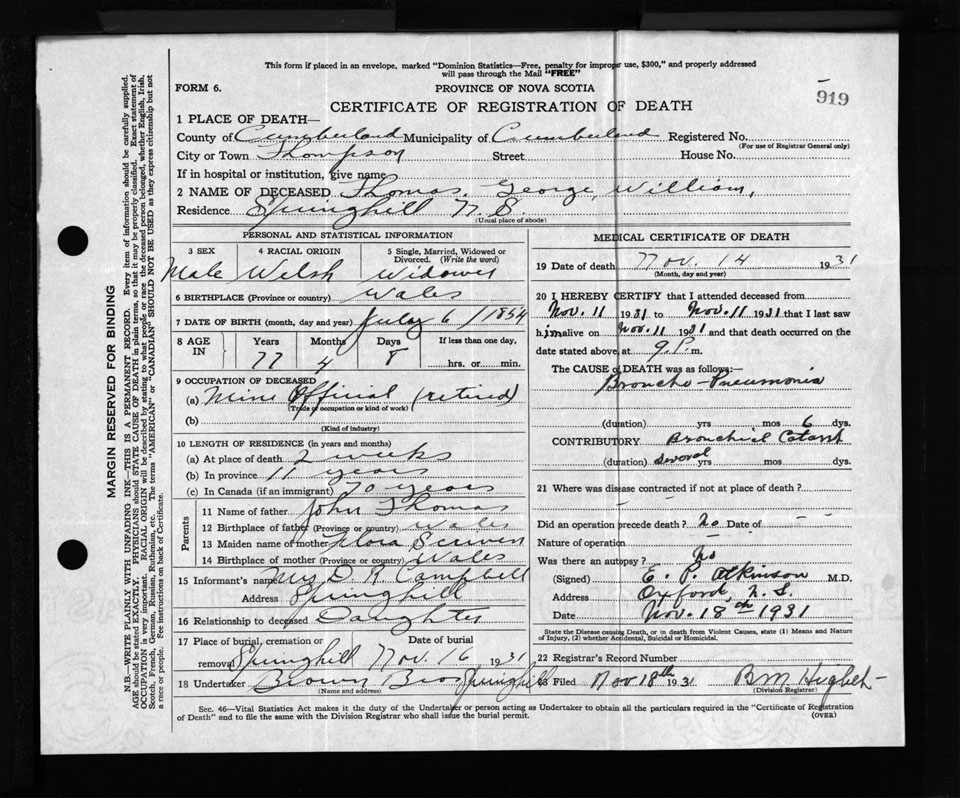 This form if placed in an envelope, marked "Dominion Statistics—Free, penalty for improper use, $300," and properly addressed
will pass through the Mail "FREE"
FORM 6. PROVINCE OF NOVA SCOTIA
919
CERTIFICATE OF REGISTRATION OF DEATH
1 PLACE OF DEATH—
County of Cumberland Municipality of Cumberland Registered No.
(For use of Registrar General only)
City or Town Thompson Street House No.
If in hospital or institution, give name
2 NAME OF DECEASED Thomas, George, William,
Residence Springhill N.S.
(Usual place of abode)
PERSONAL AND STATISTICAL INFORMATION
3 SEX 4 RACIAL ORIGIN 5 Single, Married, Widowed or Divorced. (Write the word)
Male Welsh Widower
6 BIRTHPLACE (Province or country) Wales
7 DATE OF BIRTH (month, day and year) July 6 / 1854
8 AGE IN Years Months Days If less than one day,
77 4 8 hrs. or min.
9 OCCUPATION OF DECEASED
(a) Mine Official (retired)
(Trade or occupation or kind of work)
(b)
(Kind of industry)
10 LENGTH OF RESIDENCE (in years and months)
(a) At place of death 2 weeks
(b) In province 11 years
(c) In Canada (if an immigrant) 70 years
Parents
11 Name of father John Thomas
12 Birthplace of father (Province or country) Wales
13 Maiden name of mother Flora Scriven
14 Birthplace of mother (Province or country) Wales
15 Informant's name Mrs D. R. Campbell
Address Springhill
16 Relationship to deceased Daughter
17 Place of burial, cremation or Date of burial
removal Springhill Nov. 16 1931
18 Undertaker Brown Bros Springhill
(Name and address)
MEDICAL CERTIFICATE OF DEATH
19 Date of death Nov. 14 1931
(Month, day and year)
20 I HEREBY CERTIFY that I attended deceased from
Nov. 11 1931 to Nov. 11 1931 that I last saw
him alive on Nov. 11 1931 and that death occurred on the
date stated above, at 9 P. m.
The CAUSE of DEATH was as follows:—
Broncho-Pneumonia
(duration) yrs mos 6 dys.
CONTRIBUTORY Bronchial Catarrh
(duration) several yrs mos dys.
21 Where was disease contracted if not at place of death?
Did an operation precede death? No Date of
Nature of operation
Was there an autopsy? No
(Signed) E. P. Atkinson M.D.
Address Oxford, N.S.
Date Nov. 18th 1931
State the Disease causing Death, or in death from Violent Causes, state (1) Means and Nature
of Injury, (2) whether Accidental, Suicidal or Homicidal.
22 Registrar's Record Number
23 Filed Nov 18th 1931 B M Higbet
(Division Registrar)
Sec. 46—Vital Statistics Act makes it the duty of the Undertaker or person acting as Undertaker to obtain all the particulars required in the "Certificate of Registration
of Death" and to file the same with the Division Registrar who shall issue the burial permit. (OVER)
MARGIN RESERVED FOR BINDING
N.B.—WRITE PLAINLY WITH UNFADING INK—THIS IS A PERMANENT RECORD. Every item of information should be carefully supplied.
AGE should be stated EXACTLY. PHYSICIANS should STATE CAUSE OF DEATH in plain terms, so that it may be properly classified. Exact statement of
OCCUPATION is very important. RACIAL ORIGIN will be described by stating to what people or race the deceased person belonged, whether English, Irish,
Scotch, French, German, Russian, Ruthenian, etc. The terms "AMERICAN" or "CANADIAN" SHOULD NOT BE USED as they express citizenship but not
a race or people. See instructions on back of Certificate.